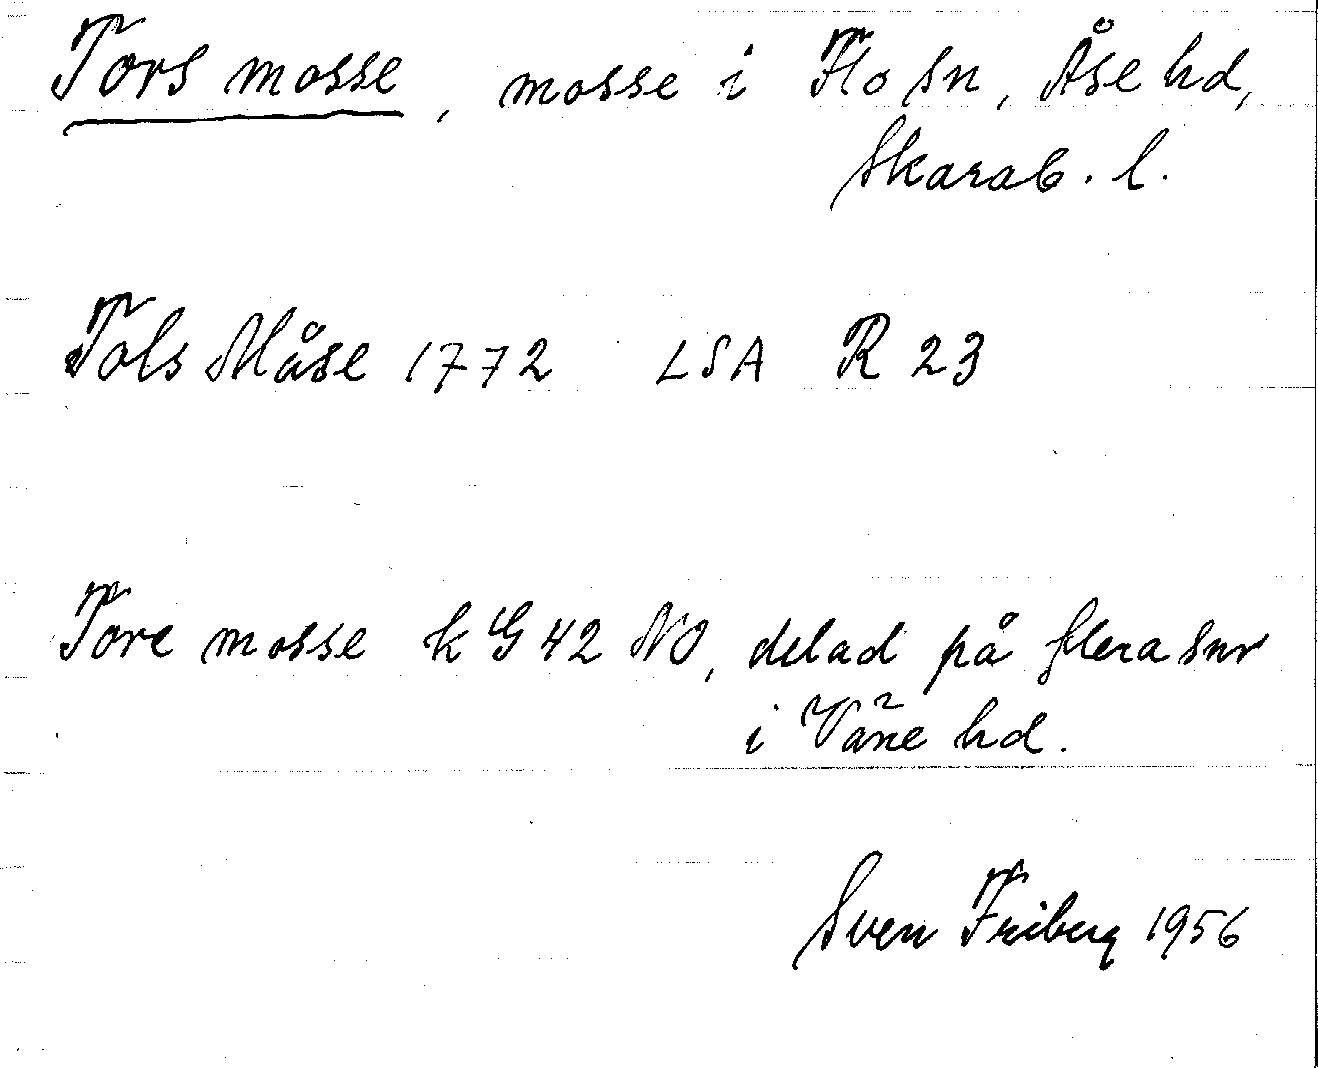 Tors mosse, mosse i Flo sn, Åse hd,
Skarab. l.
Tols Måse 1772 LSA R 23
Tore mosse k G 42 NO, delad på flera snr
i Väne hd.
Sven Friberg 1956